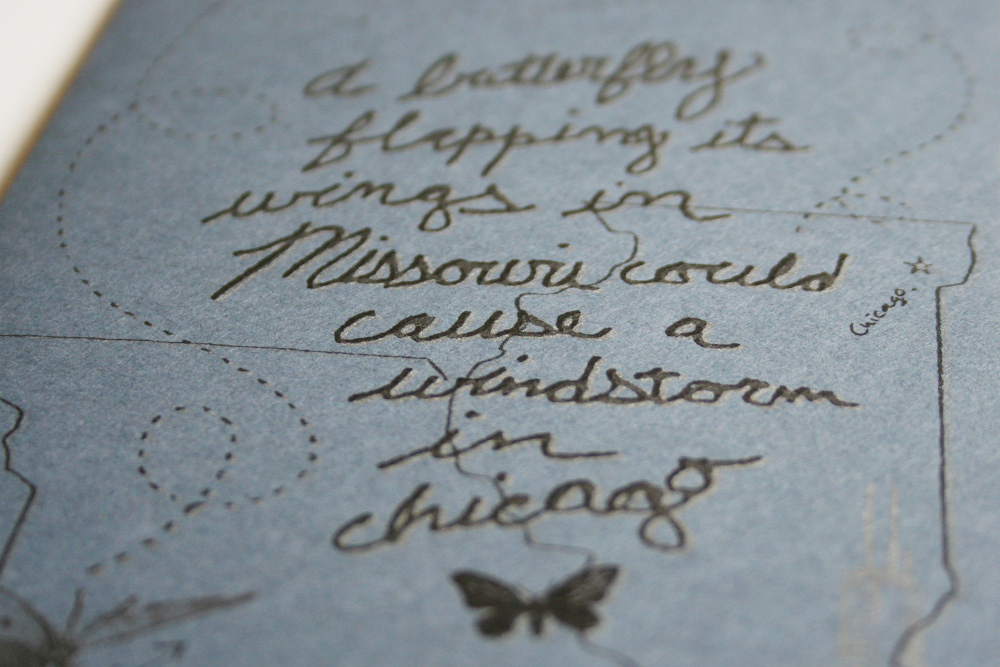 a butterfly
flapping its
wings in
Missouri could
cause a
windstorm
in
chicago
Chicago.